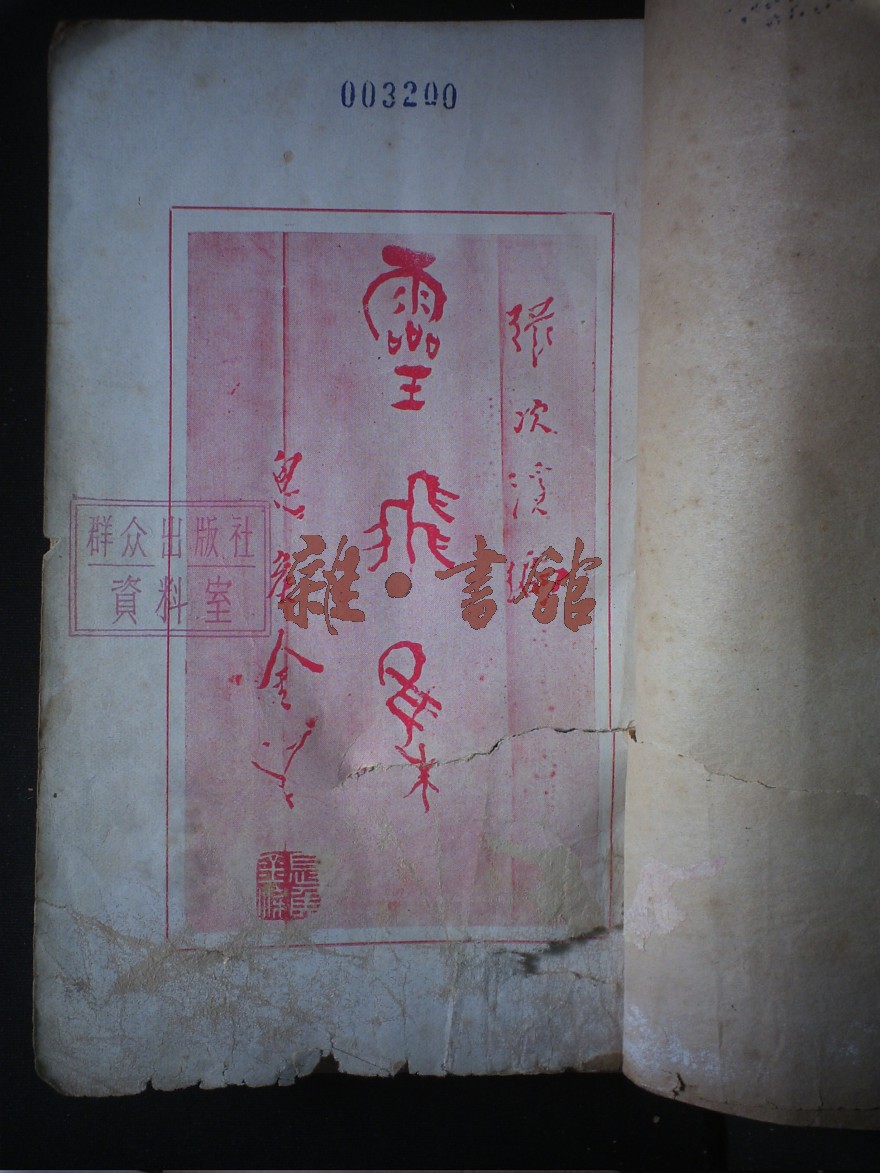 003200
張次溪編
靈飛集
息侯金梁
群众出版社
資料室
雜·書館